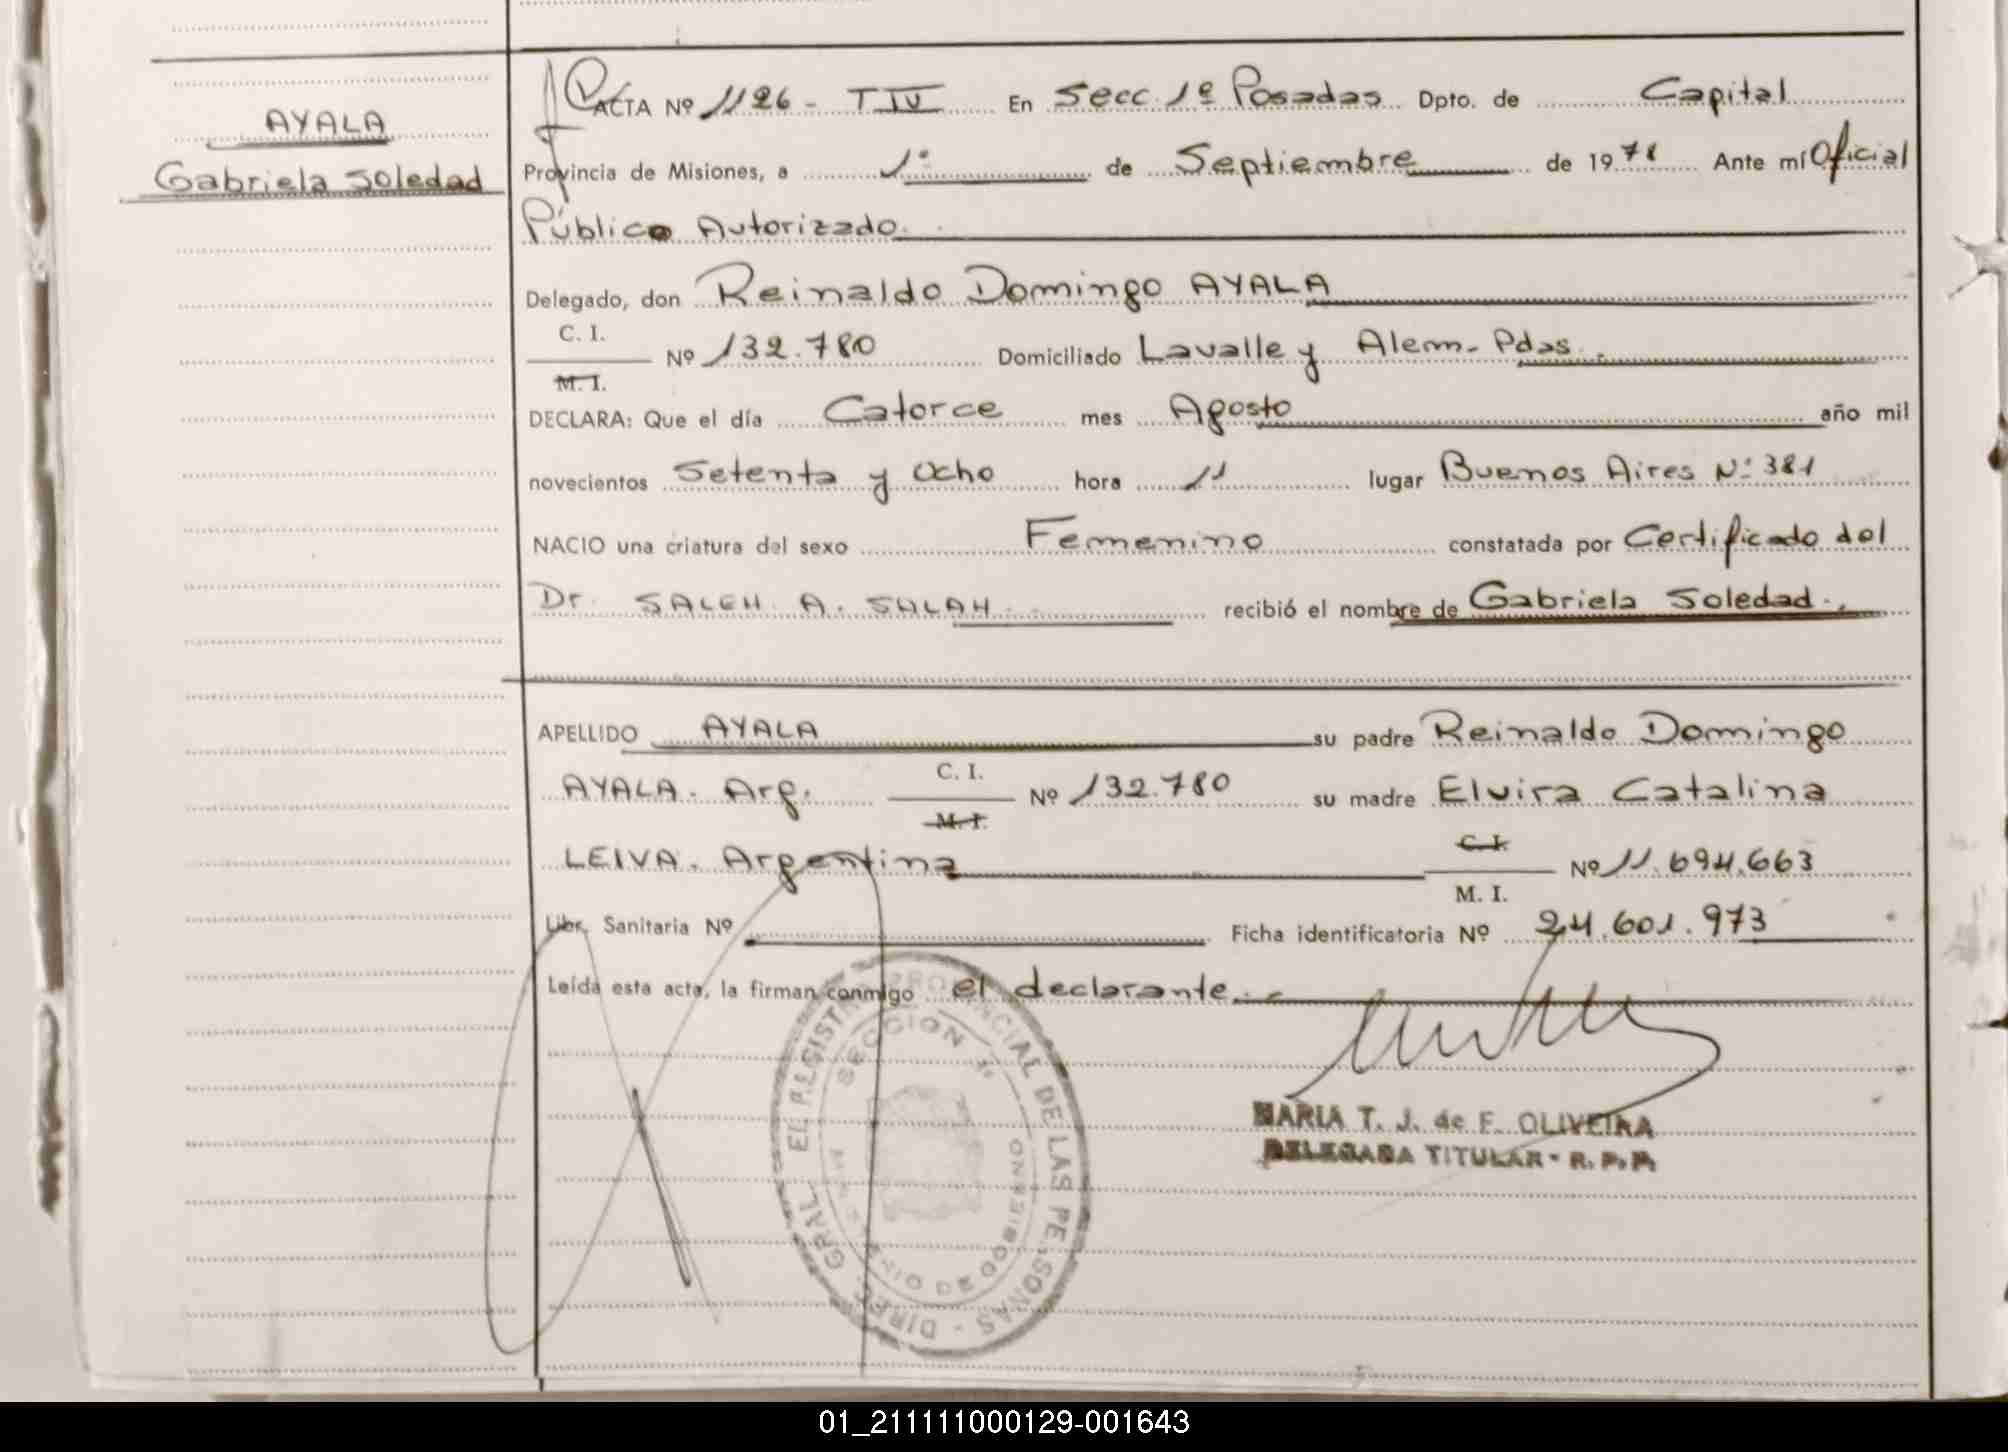 AYALA
Gabriela Soledad
ACTA Nº 1126 - TIV En Secc. 1º Posadas Dpto. de Capital
Provincia de Misiones, a 1º de Septiembre de 1978 Ante mí Oficial
Público Autorizado.
Delegado, don Reinaldo Domingo AYALA
C. I.
Nº 132.780 Domiciliado Lavalle y Alem - Pdas.
M. I.
DECLARA: Que el día Catorce mes Agosto año mil
novecientos Setenta y Ocho hora 11 lugar Buenos Aires Nº 381
NACIO una criatura del sexo Femenino constatada por Certificado del
Dr. SALEH A. SALAH. recibió el nombre de Gabriela Soledad.
APELLIDO AYALA su padre Reinaldo Domingo
C. I.
AYALA. Arg. Nº 132.780 su madre Elvira Catalina
M. I.
C. I.
LEIVA. Argentina Nº 11.694.663
M. I.
Libr. Sanitaria Nº Ficha identificatoria Nº 24.601.973
Leída esta acta, la firman conmigo el declarante.
DIREC. GRAL. PROVINCIAL DE LAS PERSONAS
SECCION 1º
MARIA T. J. de F. OLIVEIRA
DELEGADA TITULAR - R. P. P.
01_211111000129-001643